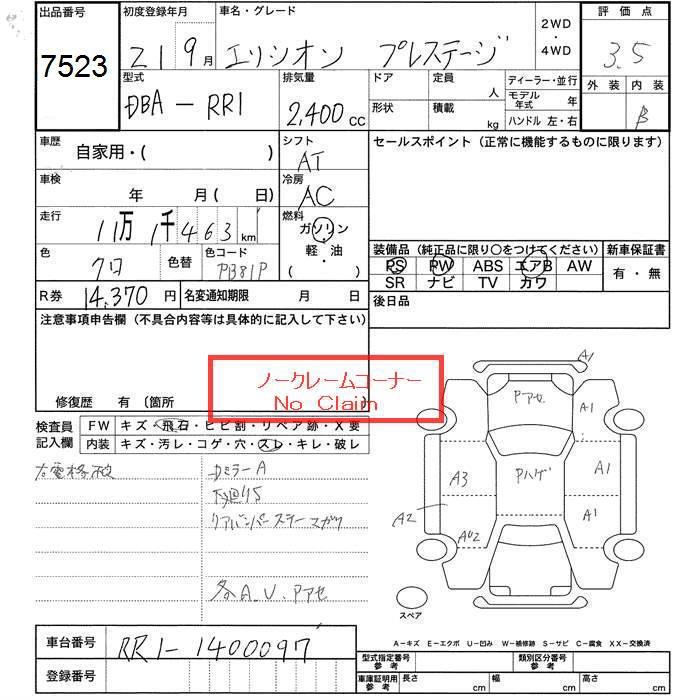 出品番号 初度登録年月 車名・グレード 2WD・4WD 評価点
7523 21 9月 エリシオン プレステージ 3.5
型式 排気量 ドア 定員 人 ディーラー・並行 外装 内装
DBA-RR1 2,400cc 形状 積載 kg モデル年式 年 B
ハンドル 左・右
車歴 自家用・( ) シフト AT セールスポイント(正常に機能するものに限ります)
車検 年 月( 日) 冷房 AC
走行 11万1千463km 燃料 ガソリン 軽・油 ( ・ )
装備品(純正品に限り○をつけてください) 新車保証書
色 クロ 色替 色コード PB81P PS PW ABS エアB AW 有・無
SR ナビ TV カワ
R券 14,370円 名変通知期限 月 日 後日品
注意事項申告欄(不具合内容等は具体的に記入して下さい)
ノークレームコーナー
No Claim
修復歴 有 〔箇所
検査員記入欄 FW キズ・飛石・ヒビ割・リペア跡・X要
内装 キズ・汚レ・コゲ・穴・スレ・キレ・破レ
右電格不良 ミラーA
リアバンパーステーマガリ
各A.U.Pアセ
A1
Pアセ
A1
A3 Pハゲ A1
A2 A1
AU2
スペア
A-キズ E-エクボ U-凹み W-補修跡 S-サビ C-腐食 XX-交換済
車台番号 RR1-1400097
登録番号
型式指定番号 参考 類別区分番号 参考
車庫証明用 参考 長さ cm 幅 cm 高さ cm